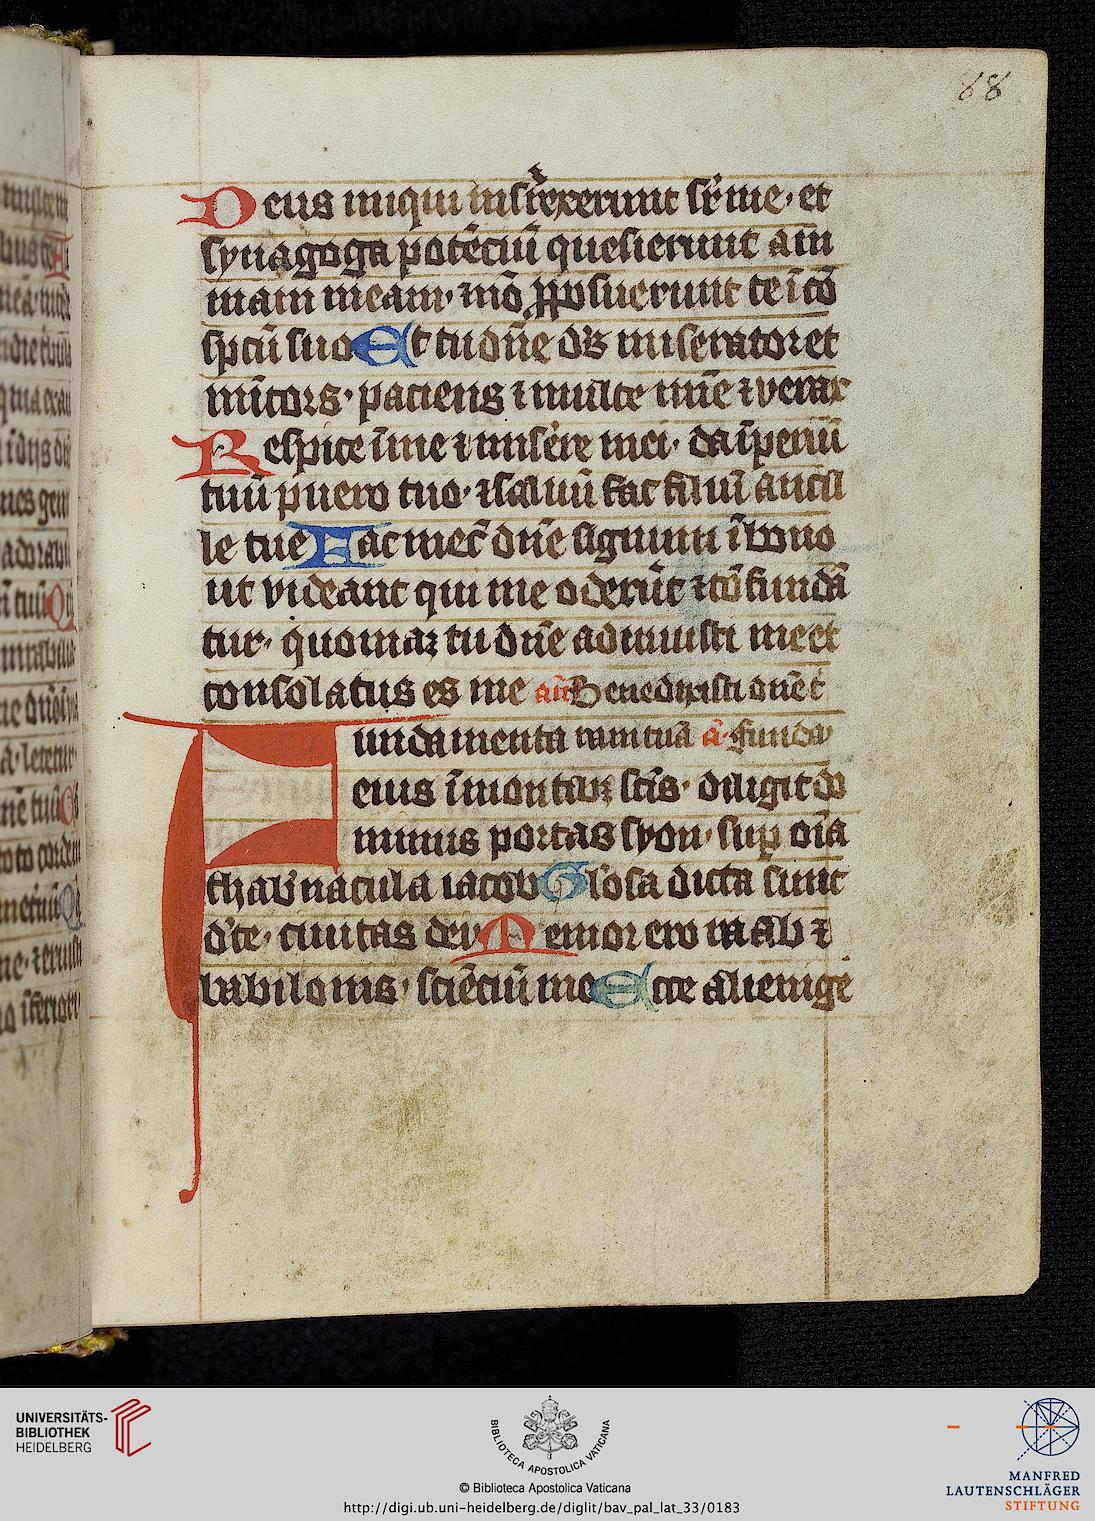 88
Deus iniqui insrexerunt sr̄ me· et
synagoga potēciū quesierunt ani
mam meam· ⁊ nō ꝓposuerunt te ī cō
spcū suo Et tu dn̄e ds̄ miserator et
mīcors· paciens ⁊ multe mīe ⁊ verax
Respice ī me ⁊ misere mei· da īperiū
tuū puero tuo· ⁊ saluū fac filiū ancil
le tue Fac mec̄ dn̄e signum ī bono
ut videant qui me oderūt ⁊ cōfundā
tur· quoniaꝫ tu dn̄e adiuuisti me et
consolatus es me an̄ Benedixisti dn̄e t̄
Fundamenta ram tuā a᷍ Funda
eius ī montibꝫ scīs· diligit do
minus portas syon· suꝑ oīa
thab'nacula iacob Glosa dicta sunt
d'te· ciuitas dei Memor ero raab ⁊
babilonis· sciēciū me Ecce alienige
UNIVERSITÄTS-
BIBLIOTHEK
HEIDELBERG
BIBLIOTECA APOSTOLICA VATICANA
© Biblioteca Apostolica Vaticana
http://digi.ub.uni-heidelberg.de/diglit/bav_pal_lat_33/0183
MANFRED
LAUTENSCHLÄGER
STIFTUNG